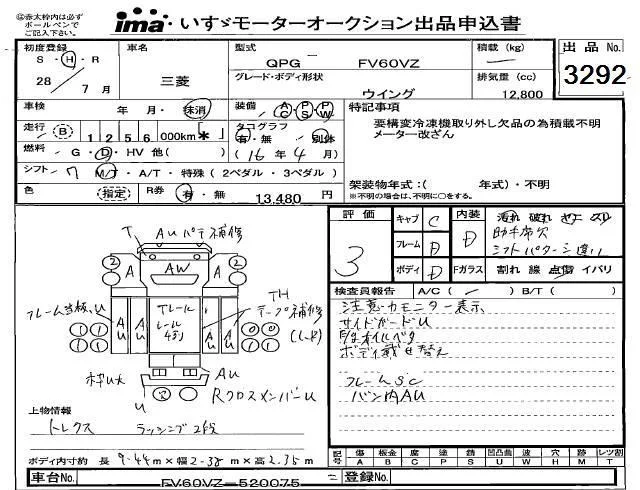 ◎赤太枠内は必ず
ボールペンで
ご記入下さい。
ima いすゞモーターオークション出品申込書
初度登録
S・H・R
28 7 月
車名
三菱
型式
QPG FV60VZ
グレード・ボディ形状
ウイング
積載 (kg)
排気量 (cc)
12,800
出品 No.
3292
車検 年 月・抹消
走行 B 1 2 5 6 000km *
燃料 G・D・HV 他( )
シフト 7 M/T・A/T・特殊(2ペダル・3ペダル)
色 (指定) R券 有・無 13,480 円
装備 AC PS PW
タコグラフ
有・無 別体
(16 年 4 月)
特記事項
要構変冷凍機取り外し欠品の為積載不明
メーター改ざん
架装物年式:( 年式)・不明
※不明の場合は、不明に○をする。
評価
3
キャブ C
フレーム B
ボディ D
内装 D
助手席欠
シフトパターン違い
Fガラス 割れ 線 点傷 イバリ
検査員報告 A/C( ) B/T( )
注意カモニター表示
サイドガードU
ボディ載せ替え
フレームSC
バン内AU
T AUパテ補修
2 A AW A 2
フレーム当板、U
TH
テープ補修
(L、R)
Tレール
レール
4本
AU AU AU AU
枠U大
U
AU
RクロスメンバーU
上物情報
トレクス ラッシング2段
ボディ内寸約 長 9.44m×幅 2.38m×高 2.35m
記号 傷 A 板金 B 腐 C 塗 P 錆 S 凹凸曲 U 波 W 穴 H 跡 M レツ割 T
車台No. FV60VZ-520075 登録No.